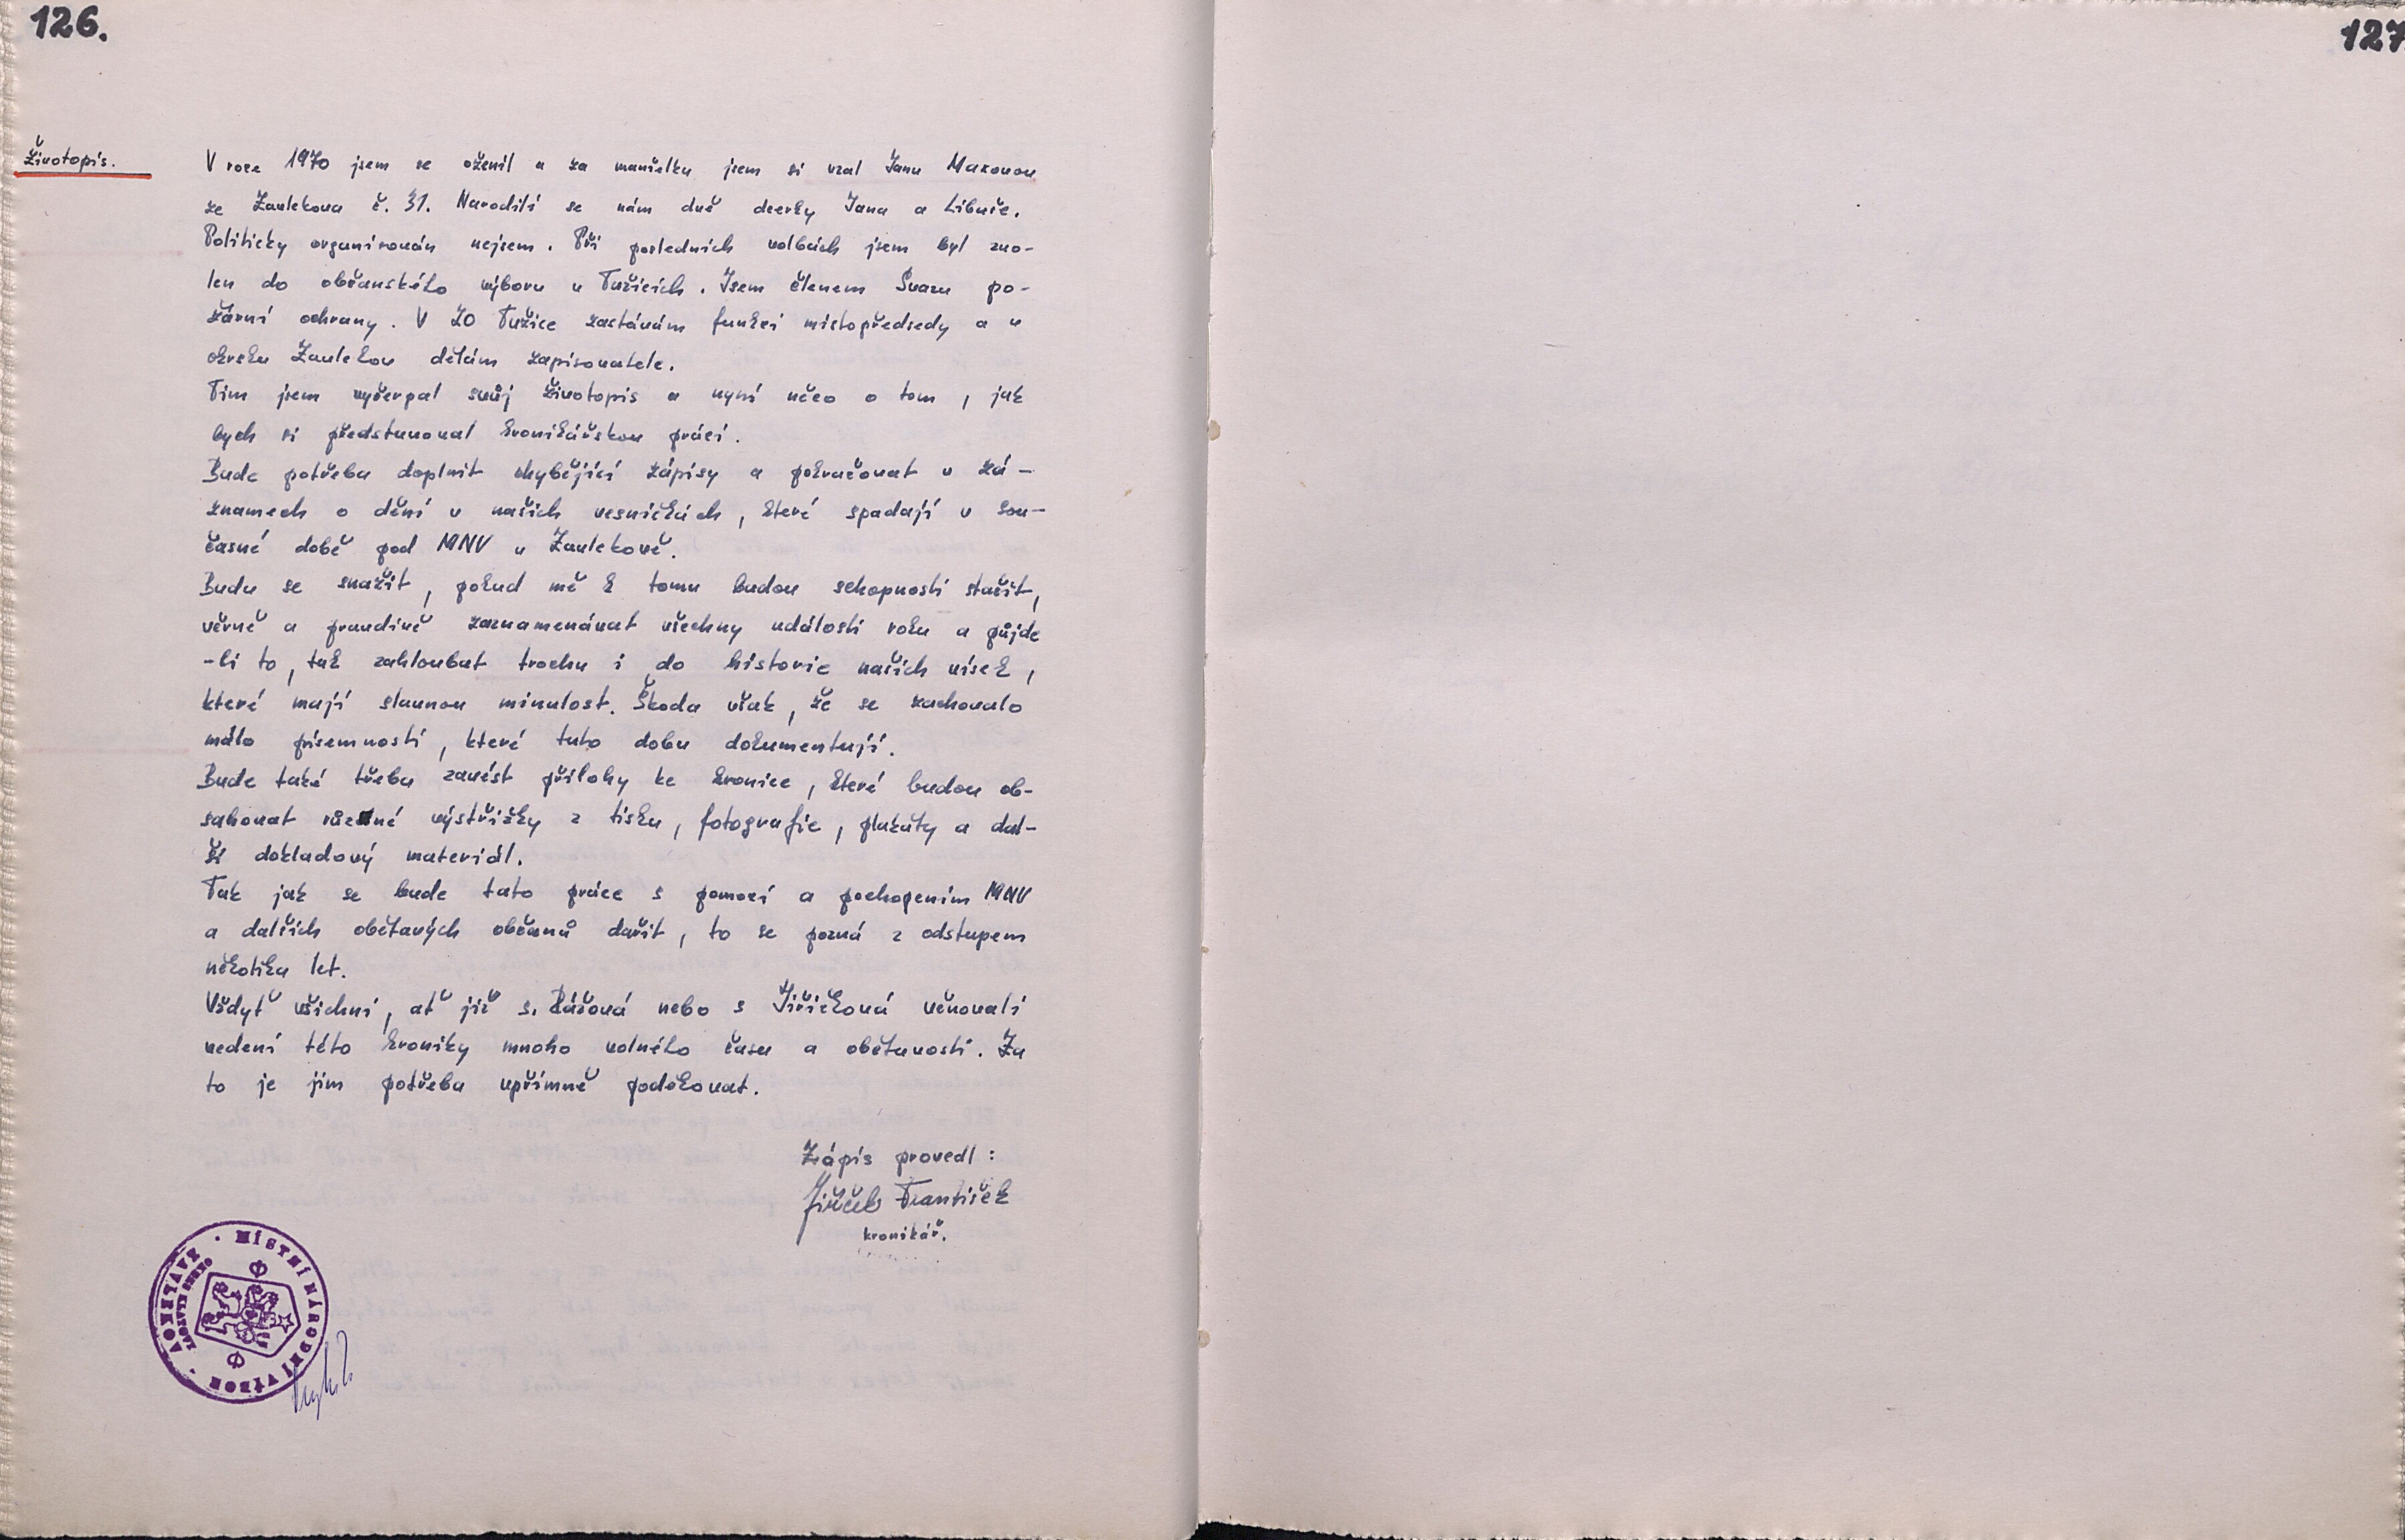 126.
127
Životopis.
V roce 1970 jsem se oženil a za manželku jsem si vzal Janu Maxovou
ze Zavlekova č. 31. Narodili se nám dvě dcerky Jana a Libuše.
Politicky organisován nejsem. Při posledních volbách jsem byl zvo-
len do občanského výboru v Tužicích. Jsem členem Svazu po-
žární ochrany. V ZO Tužice zastávám funkci místopředsedy a v
okrsku Zavlekov dělám zapisovatele.
Tím jsem vyčerpal svůj životopis a nyní něco o tom, jak
bych si představoval kronikářskou práci.
Bude potřeba doplnit chybějící zápisy a pokračovat v zá-
znamech o dění v našich vesničkách, které spadají v sou-
časné době pod MNV v Zavlekově.
Budu se snažit, pokud mě k tomu budou schopnosti stačit,
věrně a pravdivě zaznamenávat všechny události roku a půjde
-li to, tak zahloubat trochu i do historie našich vísek,
které mají slavnou minulost. Škoda však, že se zachovalo
málo písemností, které tuto dobu dokumentují.
Bude také třeba zavést přílohy ke kronice, které budou ob-
sahovat různé výstřižky z tisku, fotografie, plakáty a dal-
ší dokladový materiál.
Tak jak se bude tato práce s pomocí a pochopením MNV
a dalších obětavých občanů dařit, to se pozná z odstupem
několika let.
Vždyť všichni, ať již s. Kášová nebo s Jiříčková věnovali
vedení této kroniky mnoho volného času a obětavosti. Za
to je jim potřeba upřímně poděkovat.
Zápis provedl:
Jiříček František
kronikář.
MÍSTNÍ NÁRODNÍ VÝBOR
ZAVLEKOV
OKRES KLATOVY